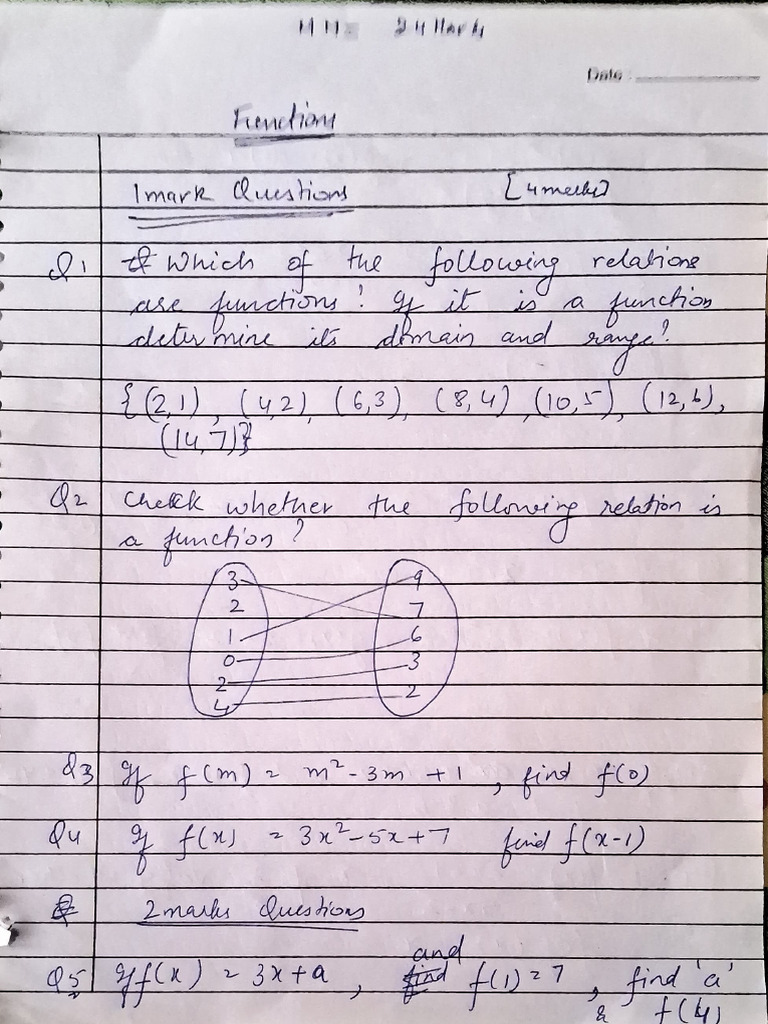 MM: 24 Mark
Date :
Functions
1 mark Questions [4 marks]
Q1 Which of the following relations
are functions? If it is a function
determine its domain and range?
{(2,1), (4,2), (6,3), (8,4), (10,5), (12,6),
(14,7)}
Q2 Check whether the following relation is
a function?
3 9
2 7
1 6
0 3
2 2
4
Q3 If f(m) = m² - 3m + 1, find f(0)
Q4 If f(x) = 3x² - 5x + 7 find f(x-1)
2 marks Questions
Q5 If f(x) = 3x + a, and f(1) = 7, find 'a'
& f(4)